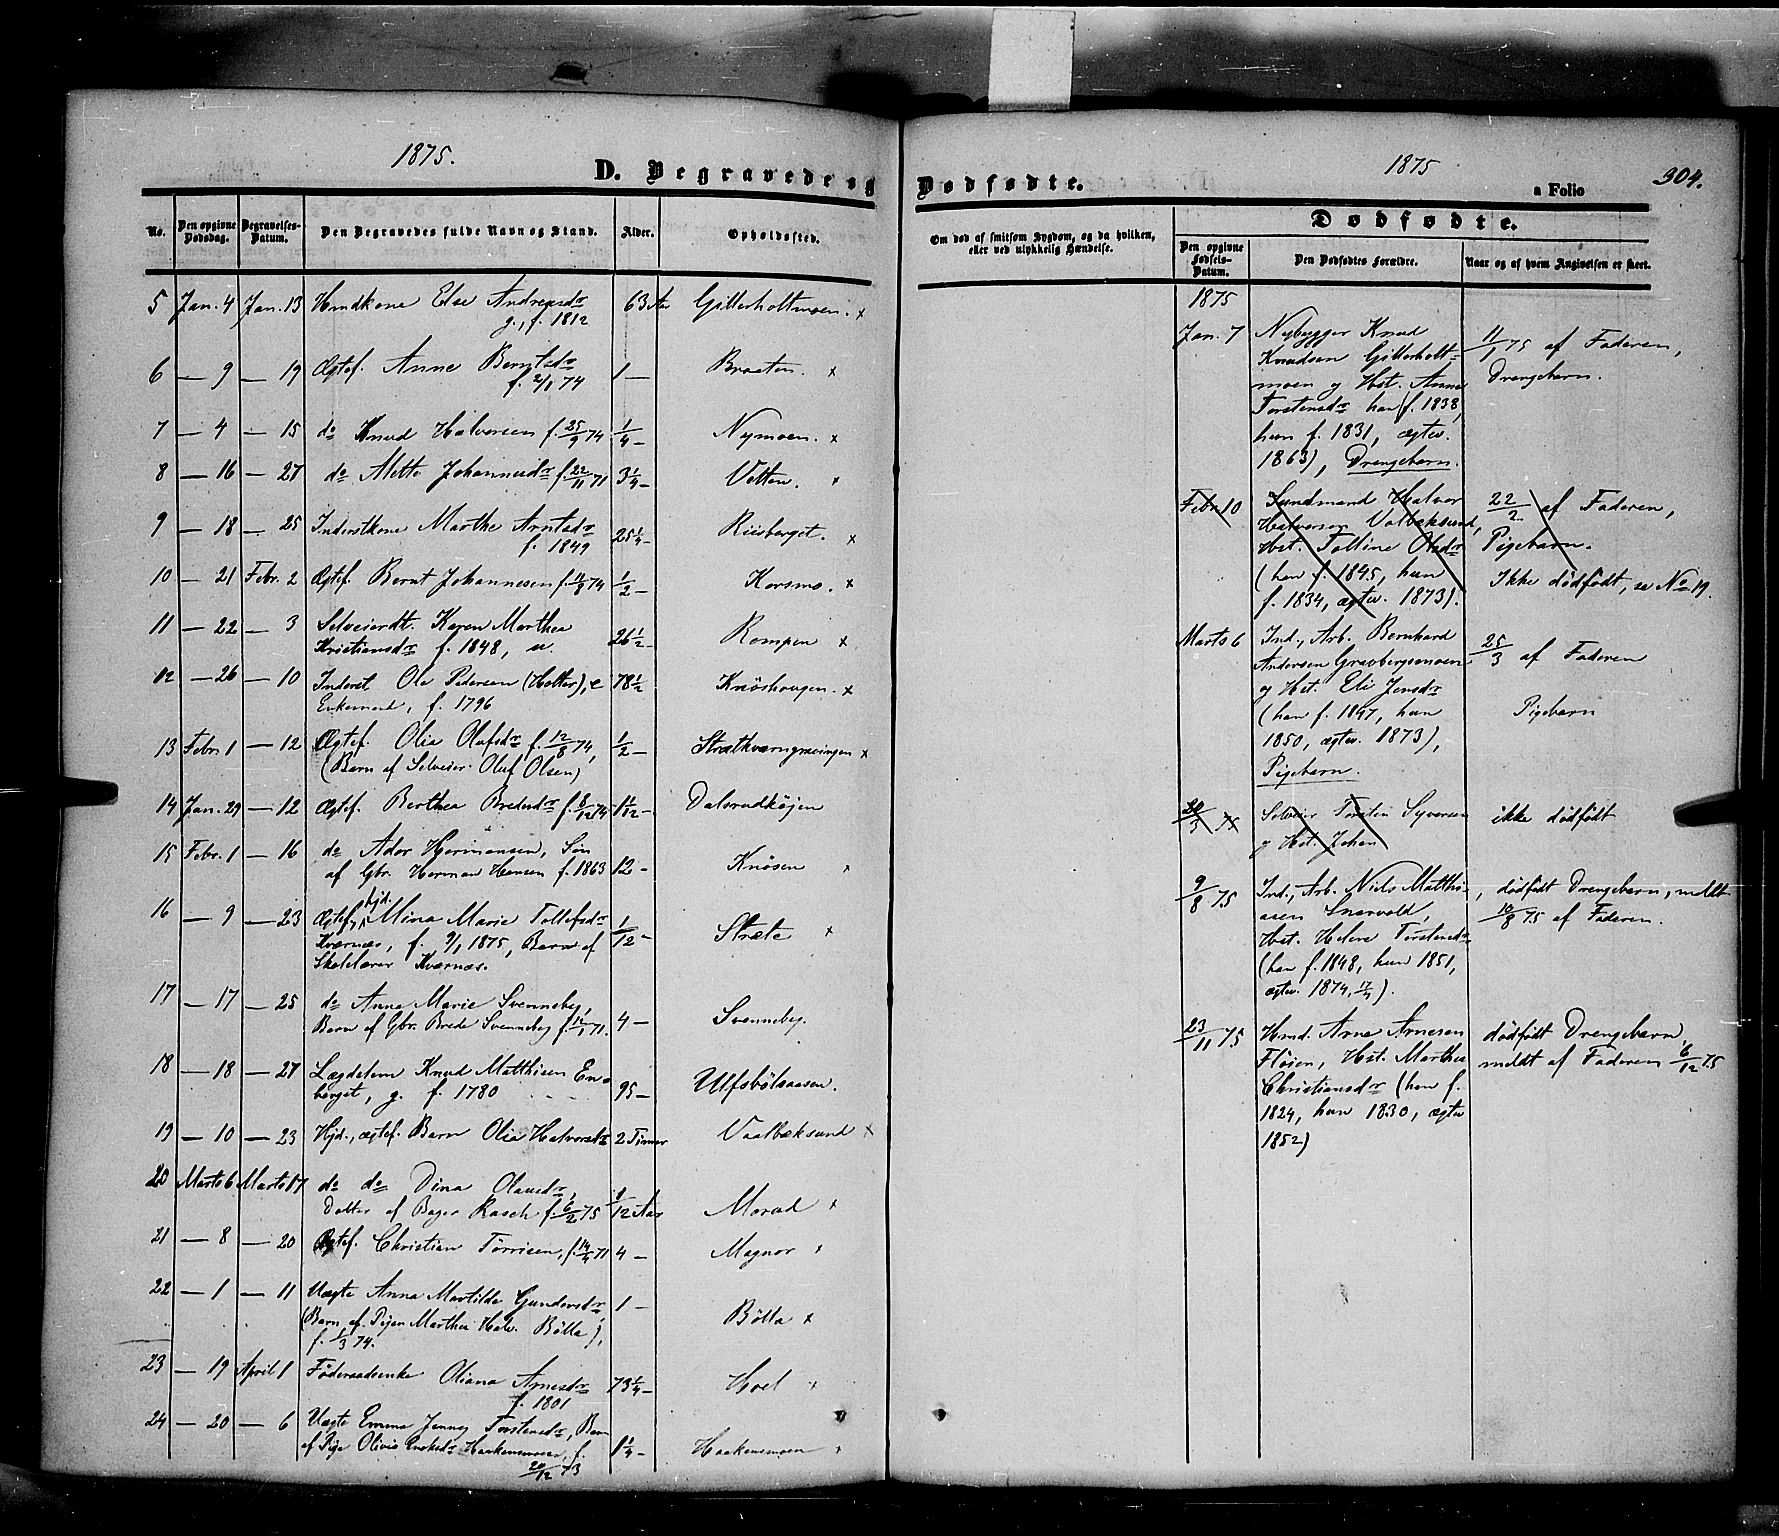 1875.
D. Begravede og
No.
Den opgivne Dødsdag.
Begravelses-Datum.
Den Begravedes fulde Navn og Stand.
Alder.
Opholdssted.
5 Jan. 4 Jan. 13 Hmdkone Else Andreasdr 63 Aar Gitterholtmoen. x
g., f. 1812
6 — 9 — 19 Ægtef. Anne Berntsdr 1 — Braaten. x
f. 2/1 74
7 — 4 — 15 do Knud Halvorsen f. 25/9 74 1/4 — Nymoen. x
8 — 16 — 27 do Mette Johannesdr f. 22/11 71 3 1/4 — Vetten. x
9 — 18 — 25 Inderstkone Marthe Arntsdr 25 1/4 — Riisberget. x
f. 1849
10 — 21 Febr. 2 Ægtef. Bernt Johannesen f. 11/8 74 1/2 — Korsmo. x
11 — 22 — 3 Selveierdt. Karen Marthea 26 1/2 — Rompen x
Kristiansdr f. 1848, u.
12 — 26 — 10 Inderst Ole Pedersen (Holter), e 78 1/2 Knøshaugen. x
Enkemand, f. 1796
13 Febr. 1 — 12 Ægtef. Olia Olafsdr f. 12/8 74, 1/2 — x
(Barn af Selveier Oluf Olsen)
14 Jan. 29 — 12 Ægtef. Berthea Bredesdr f. 8/12 74 1/12 —
15 Febr. 1 — 16 do Ador Hermansen, Søn
af Gbr. Herman Hansen f. 1863 12 — Knøsen x
16 — 9 — 23 Ægtef. hjd. Mina Marie Tollefsdr 1/12 — Stræte x
Kværnæs, f. 9/1 1875, Barn af
Skolelærer Kværnæs.
17 — 17 — 25 do Anna Marie Svenneby,
Barn af Gbr. Brede Svenneby f. 14/1 71. 4 — Svenneby.
18 — 18 — 27 Lægdslem Knud Matthisen En-
berget, g. f. 1780 95 — Ulfsbølaasen.
19 — 10 — 23 Hjd., ægtef. Barn Olia Halvorsdr 2 Timer Vaalbæksund x
20 Marts 6 Marts 17 do do Dina Olausdr,
Datter af Bager Rasch f. 6/2 75 1/12 Aar Morud x
21 — 8 — 20 Ægtef. Christian Tørrisen, f. 14/4 71 4 — Magnor x
22 — 1 — 11 Uægte Anna Martilde Gundersdr, 1 — Bølla x
(Barn af Pigen Marthea Halv. Bølla),
f. 1/3 74.
23 — 19 April 1 Føderaadsenke Oliana Arnesdr 73 1/4 — Hoel x
f. 1801
24 — 20 — 6 Uægte Emma Jenny Torstensdr, Barn
af Pige Olivia Haakensmoen, f. 1 1/4 — Haakensmoen x
20/12 73
1875
Dødfødte.
a Folio 304.
Om død af smitsom Sygdom, og da hvilken, eller ved ulykkelig Hændelse.
Dødfødte.
Den opgivne Fødsels-Datum.
Den Dødfødtes Forældre.
Naar og af hvem Angivelsen er skeet.
1875
Jan. 7 Nybygger Knud 11/1 75 af Faderen,
Knudsen Gitterholt-
moen og Hst. Anne Drengebarn.
Torstensdr han (f. 1838,
hun f. 1831, ægtev.
1863), Drengebarn.
Febr. 10 Sundmand Halvor 22/2 af Faderen,
Halvorsen Valbæksund,
Hst. Tolline Olsdr Pigebarn.
(han f. 1845, hun Ikke dödfödt, se No 19.
f. 1834, ægtev. 1873).
Marts 6 Ind., Arb. Bernhard 25/3 af Faderen
Andersen Gravbergsmoen
og Hst. Eli Jensdr
(han f. 1847, hun Pigebarn
1850, ægtev. 1873),
Pigebarn.
20/3 75 Selveier Torstin Syversen ikke dödfödt
og Hst. Johan
9/8 75 Ind., Arb. Niels Matthi- , dödfödt Drengebarn, meldt
asen Snarvold, 10/8 75 af Faderen.
Hst. Helene Torstensdr
(han f. 1848, hun 1851,
ægtev. 1874, 17/4).
23/11 75 Hmd. Arne Arnesen dödfödt Drengebarn,
Fløien, Hst. Marthe meldt af Faderen 6/12 75
Christiansdr (han f.
1824, hun 1830, ægtev
1852)